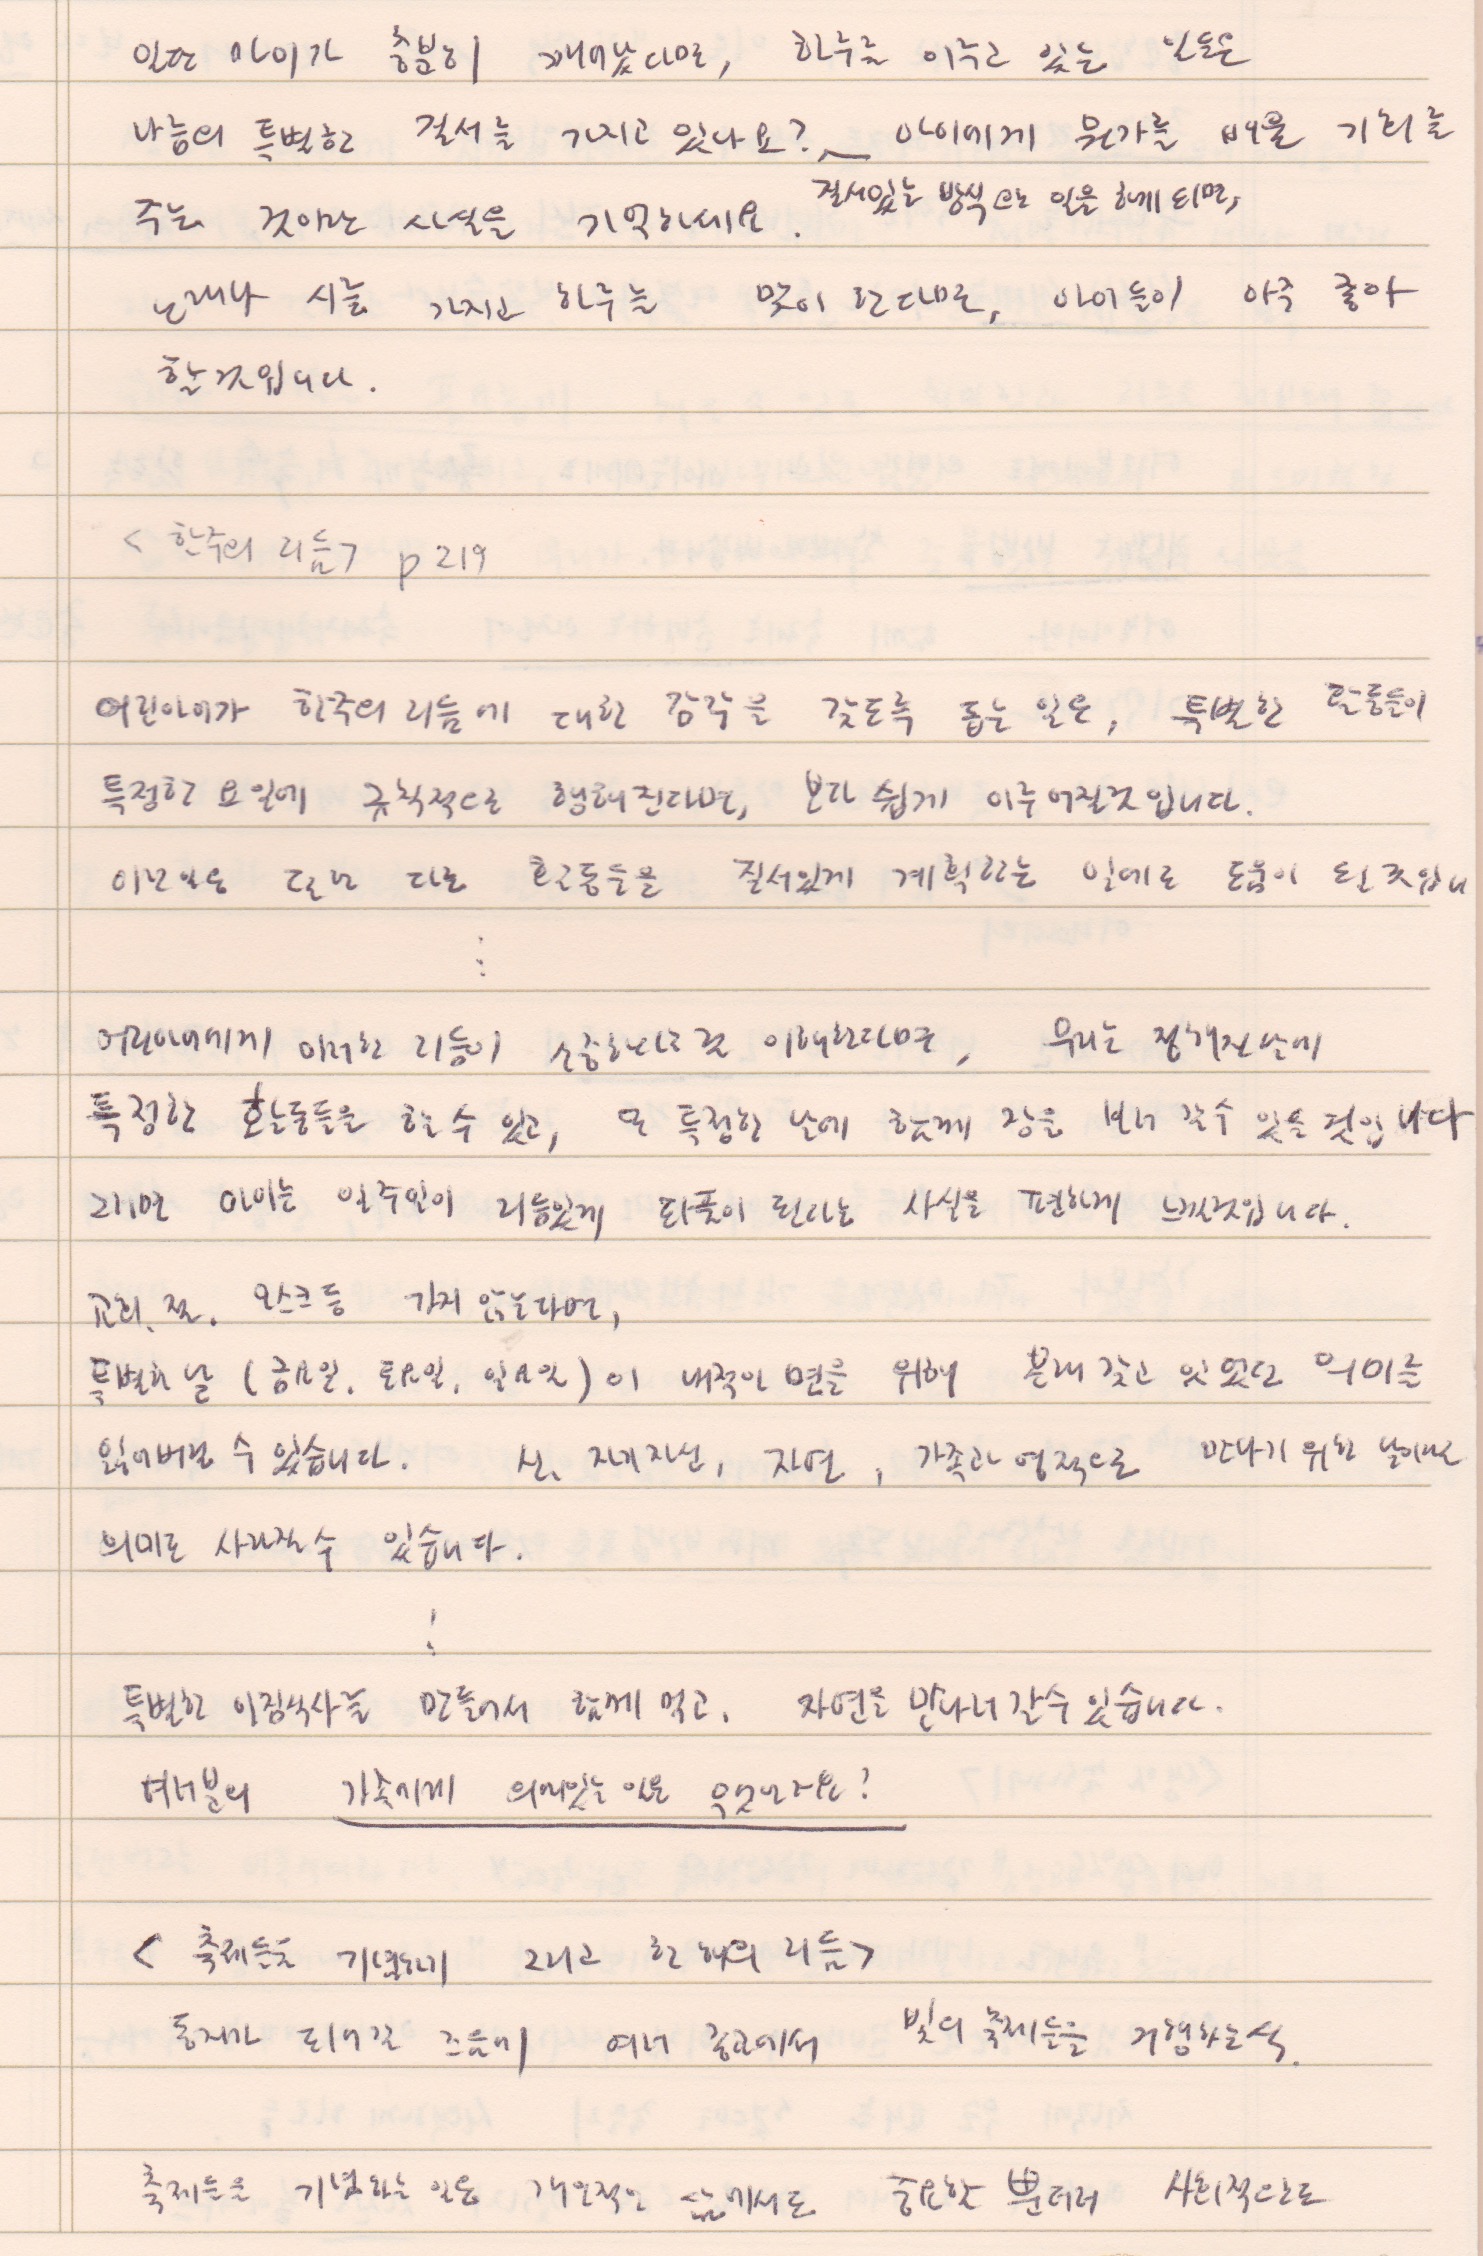 일단 아이가 충분히 깨어났다면, 하루를 이루고 있는 일들은
나름의 특별한 질서를 가지고 있나요? 아이에게 뭔가를 배울 기회를
질서있는 방식으로 일을 하게 되면,
주는 것이란 사실을 기억하세요.
노래나 시를 가지고 하루를 맞이 한다면, 아이들이 아주 좋아
할것입니다.
<한주의 리듬> p219
어린아이가 한주의 리듬에 대한 감각을 갖도록 돕는 일은, 특별한 활동들이
특정한 요일에 규칙적으로 행해진다면, 보다 쉽게 이루어질것입니다.
이런일은 달마다 다른 활동들을 질서있게 계획하는 일에도 도움이 될것입니
⋮
어린아이에게 이러한 리듬이 소중하다는 것 이해한다면, 우리는 정해진날에
특정한 활동들을 할 수 있고, 또 특정한 날에 함께 장을 보러 갈수 있을 것입니다
그러면 아이는 일주일이 리듬있게 되풀이 된다는 사실을 편하게 느낄것입니다.
교회, 절, 모스크등 가지 않는다면,
특별한 날 (금요일, 토요일, 일요일)이 내적인 면을 위해 본래 갖고 있었던 의미를
잃어버릴 수 있습니다. 신, 자기자신, 자연, 가족과 영적으로 만나기 위한 날이라는
의미도 사라질 수 있습니다.
⋮
특별한 아침식사를 만들어서 함께 먹고, 자연을 만나러 갈수 있습니다.
여러분의 가족에게 의미있는 일은 무엇인가요?
<축제들을 기념하기 그리고 한 해의 리듬>
동지가 되어갈 즈음에 여러 종교에서 빛의 축제들을 거행하는식.
축제들을 기념하는 일은 개인적인 삶에서도 중요할 뿐더러 사회적으로